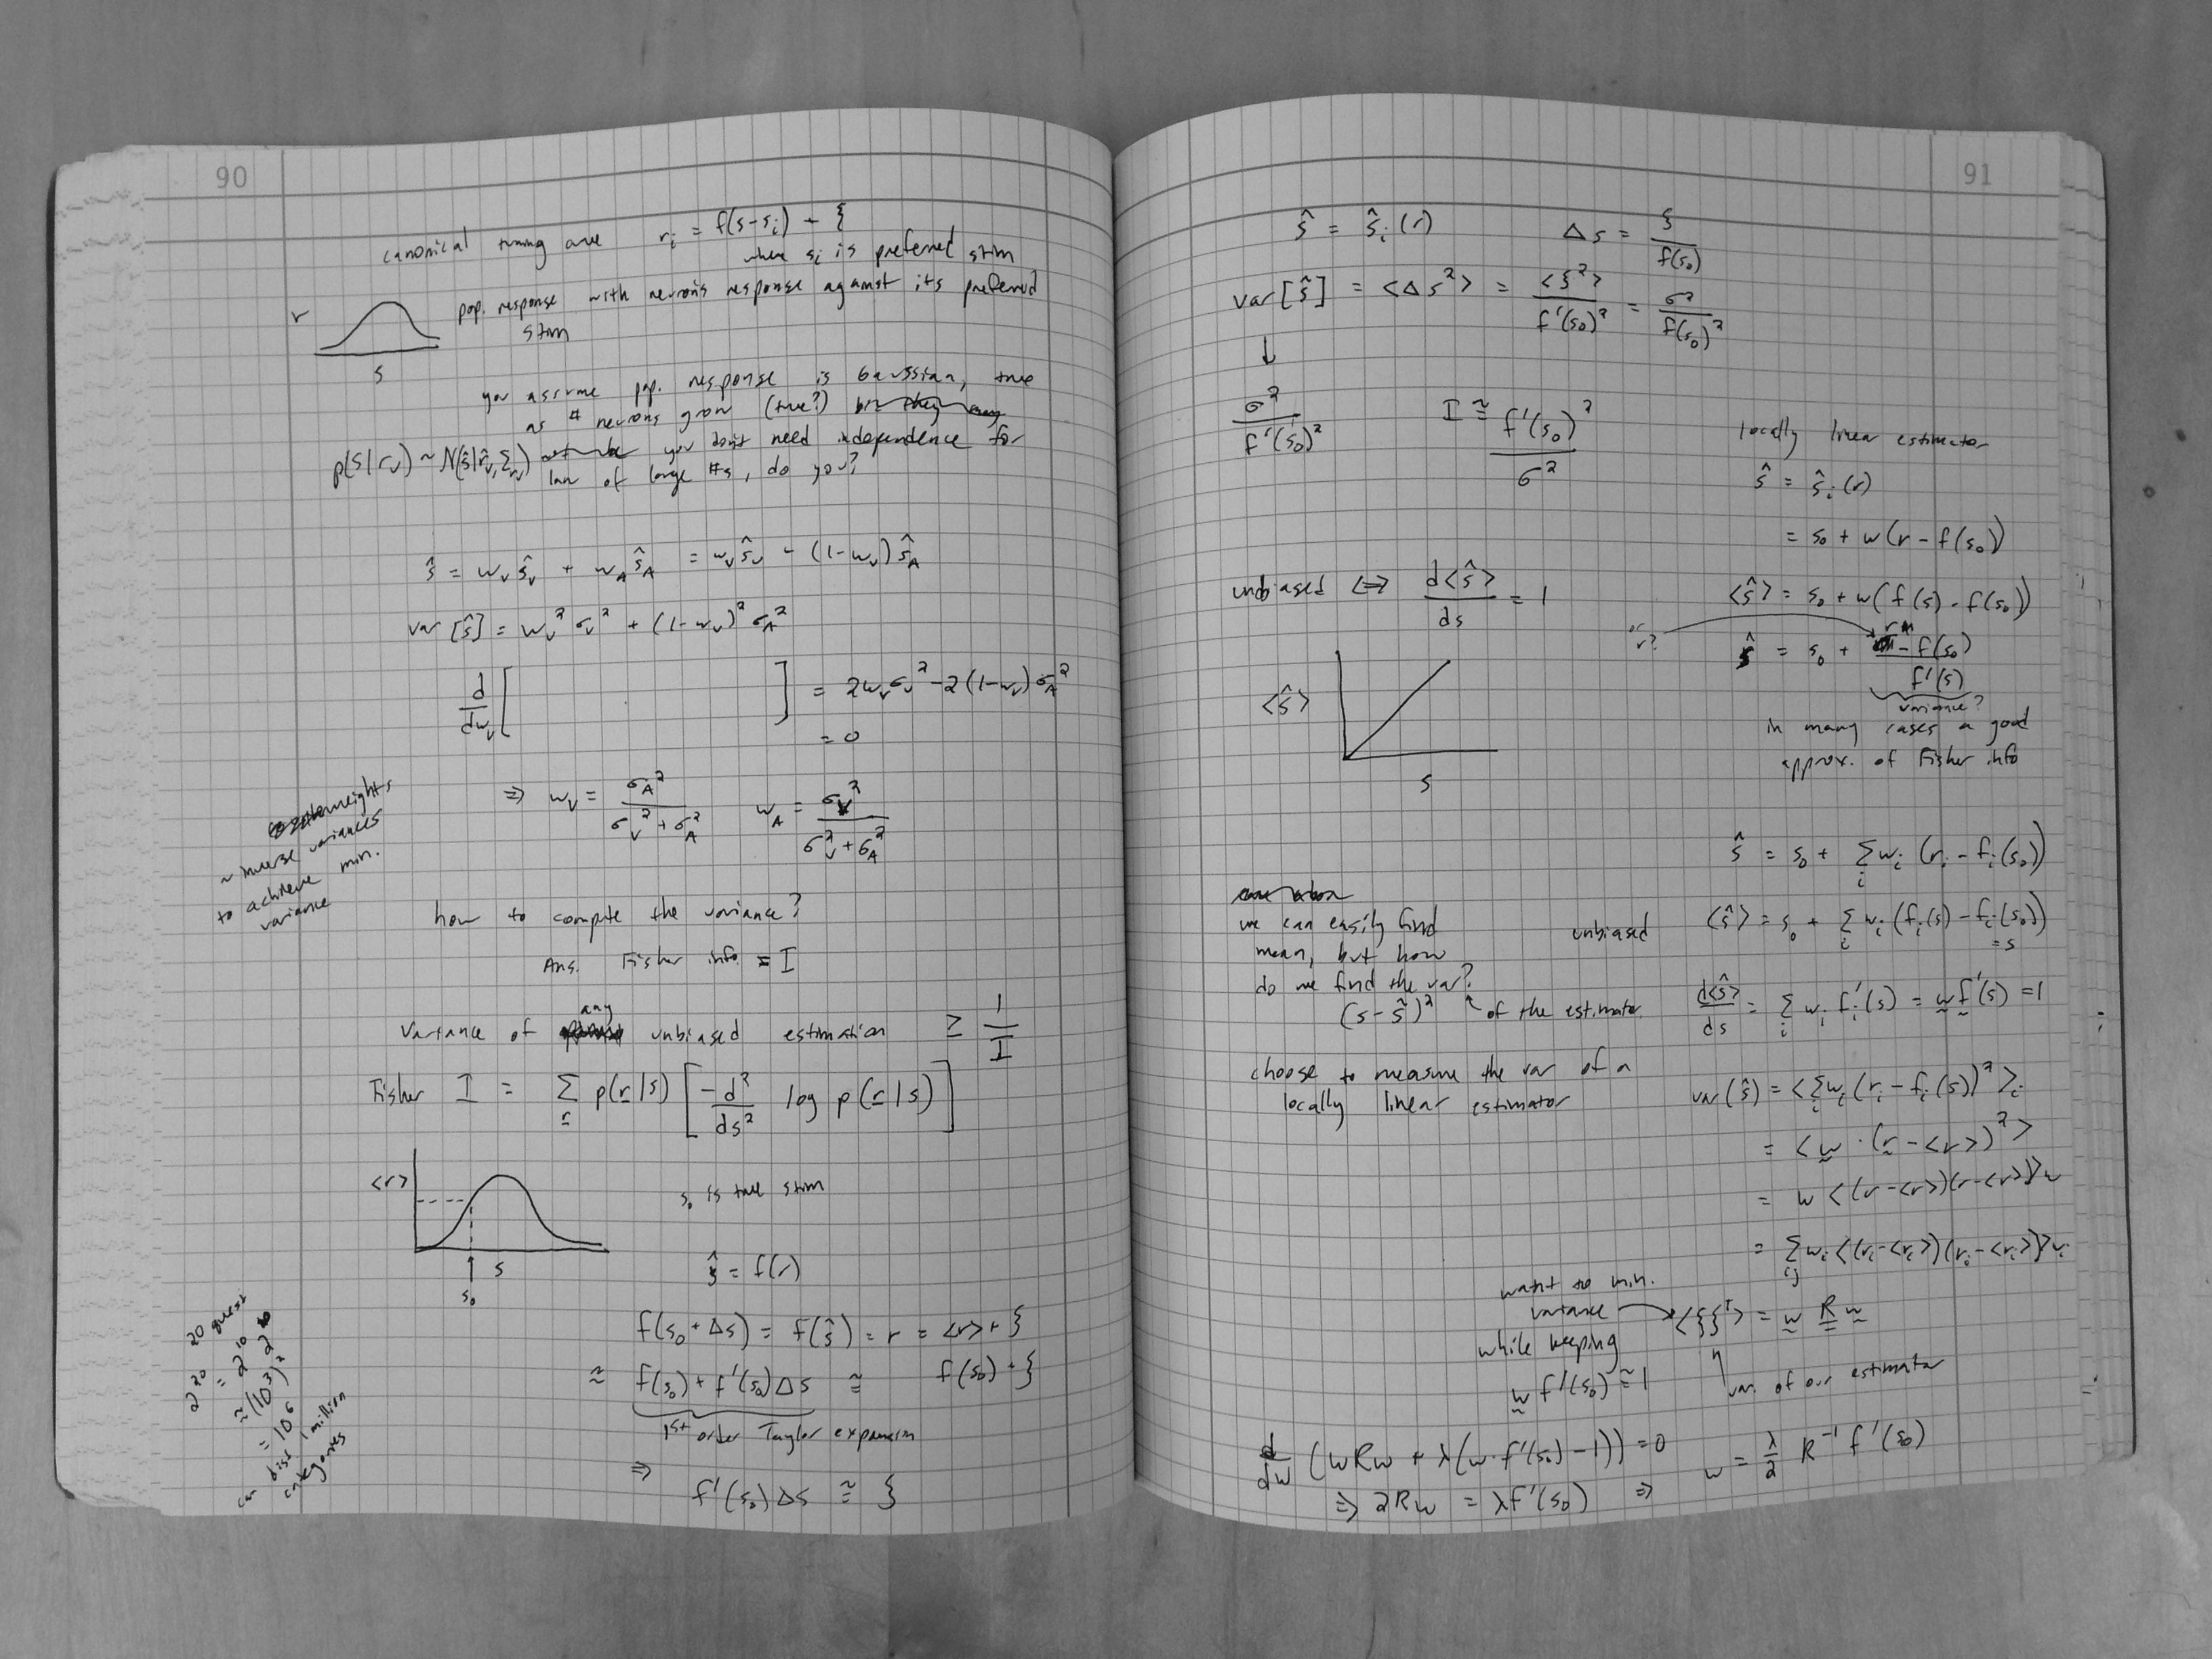 90
canonical tuning curve r_i = f(s-s_i) + ξ
where s_i is preferred stim
r
pop. response with neuron's response against its preferred
stim
s
you assume pop. response is Gaussian, true
as # neurons grow (true?)
p(s|r_v) ~ N(ŝ|r̂_v, Σ_r_v) you don't need independence for
law of large #s, do you?
ŝ = w_v ŝ_v + w_A ŝ_A = w_v ŝ_v - (1-w_v) ŝ_A
var[ŝ] = w_v² σ_v² + (1-w_v)² σ_A²
d/dw_v [ ] = 2w_v σ_v² - 2(1-w_v) σ_A²
= 0
⇒ w_v = σ_A² / (σ_v² + σ_A²) w_A = σ_v² / (σ_v² + σ_A²)
weights
~ inverse variances
to achieve min.
variance
how to compute the variance?
Ans. Fisher info. = I
any
Variance of unbiased estimation ≥ 1/I
Fisher I = Σ_r p(r|s) [ -d²/ds² log p(r|s) ]
<r>
s_0 is true stim
s
s_0
ŝ = f(r)
f(s_0 + Δs) = f(ŝ) = r = <r> + ξ
≈ f(s_0) + f'(s_0)Δs ≅ f(s_0) + ξ
1st order Taylor expansion
⇒
f'(s_0)Δs ≅ ξ
20 quest
2^20 = 2^10 2^10
≈ (10³)²
= 10⁶
can dist 1 million
categories
91
ŝ = ŝ_i(r) Δs = ξ / f(s_0)
var[ŝ] = <Δs²> = <ξ²> / f'(s_0)² = σ² / f(s_0)²
↓
σ² / f'(s_0)² I ≅ f'(s_0)² / σ²
locally linear estimator
ŝ = ŝ_i(r)
= s_0 + w(r - f(s_0))
unbiased ⇔ d<ŝ>/ds = 1
<ŝ> = s_0 + w(f(s) - f(s_0))
or
r?
ŝ = s_0 + (r - f(s_0)) / f'(s)
variance?
<ŝ>
s
in many cases a good
approx. of Fisher info
ŝ = s_0 + Σ_i w_i (r_i - f_i(s_0))
we can easily find
mean, but how
do we find the var?
(s - ŝ)² of the estimator
unbiased <ŝ> = s_0 + Σ_i w_i (f_i(s) - f_i(s_0))
= s
d<ŝ>/ds = Σ_i w_i f_i'(s) = w f'(s) = 1
choose to measure the var of a
locally linear estimator
var(ŝ) = <Σ_i w_i (r_i - f_i(s))²>_i
= <w · (r - <r>)²>
= w <(r-<r>)(r-<r>)> w
= Σ_ij w_i <(r_i - <r_i>)(r_i - <r_i>)> w_i
want to min.
variance → <ξξᵀ> = w R w
while keeping
w f'(s_0) ≅ 1
var. of our estimator
d/dw (wRw + λ(w·f'(s_0) - 1)) = 0
⇒ 2Rw = λf'(s_0) ⇒ w = λ/2 R⁻¹ f'(s_0)